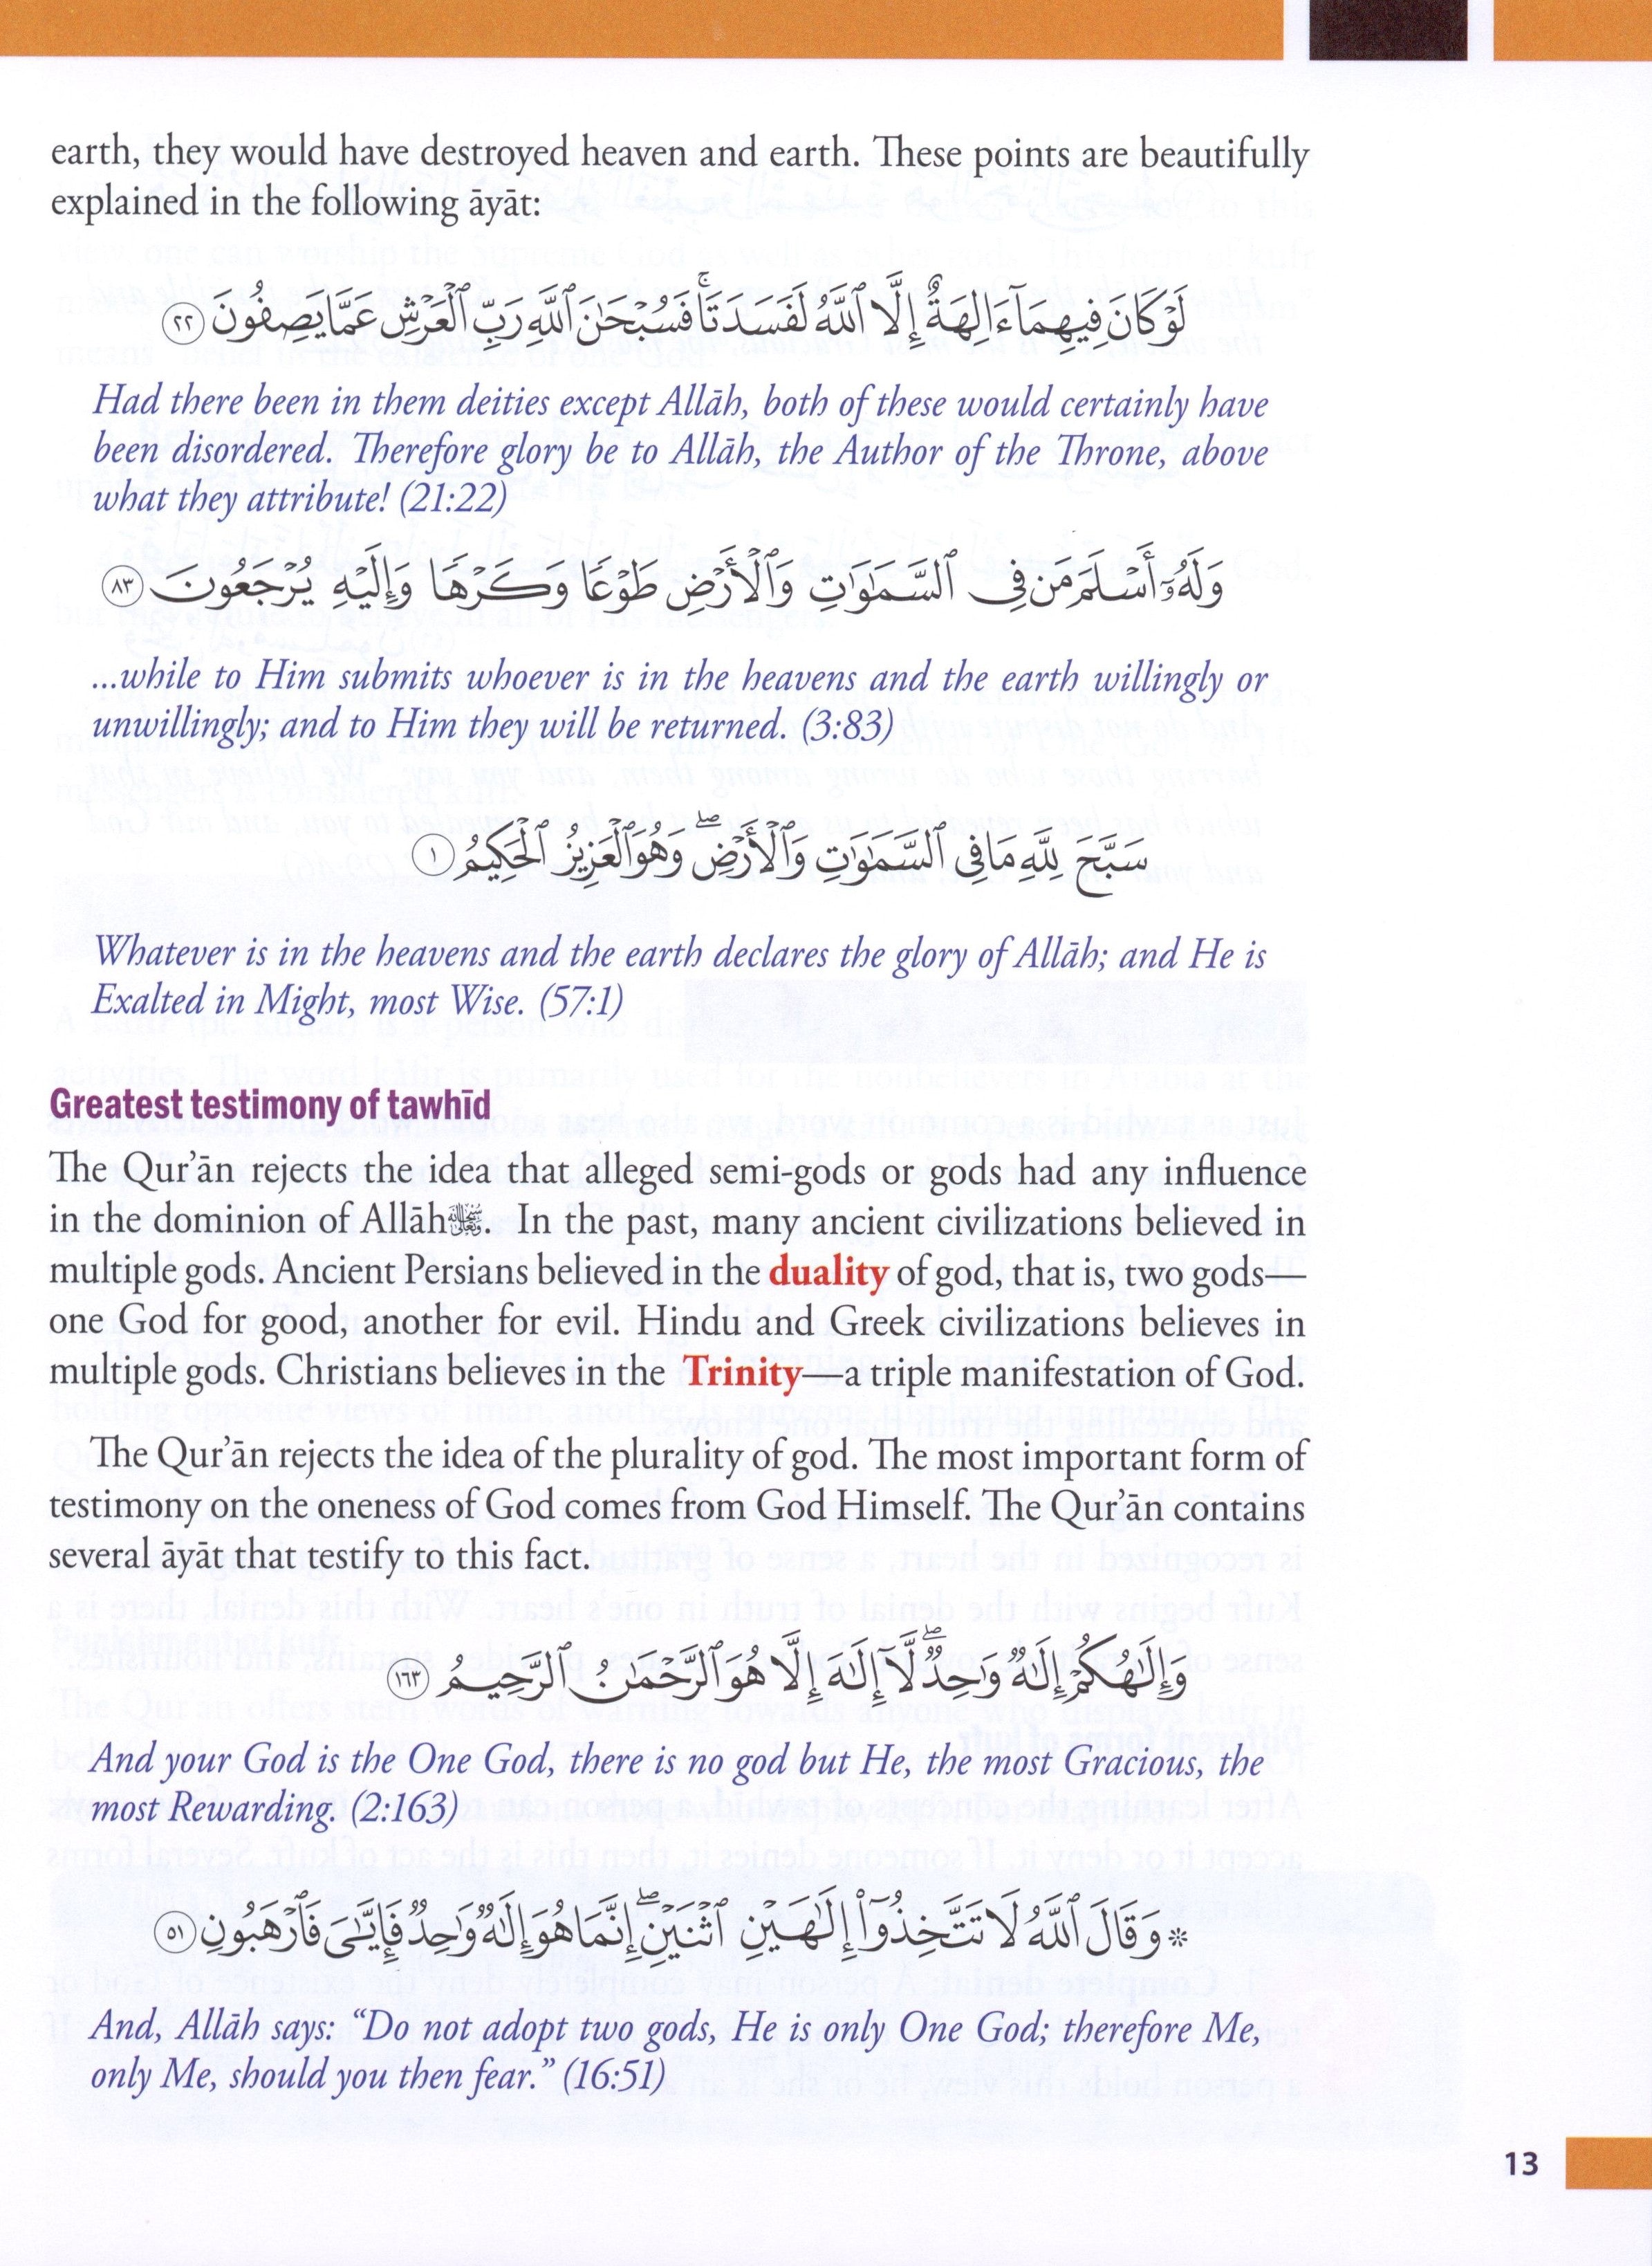 earth, they would have destroyed heaven and earth. These points are beautifully
explained in the following āyāt:
لَوْ كَانَ فِيهِمَآ ءَالِهَةٌ إِلَّا ٱللَّهُ لَفَسَدَتَا ۚ فَسُبْحَـٰنَ ٱللَّهِ رَبِّ ٱلْعَرْشِ عَمَّا يَصِفُونَ ﴿٢٢﴾
Had there been in them deities except Allāh, both of these would certainly have
been disordered. Therefore glory be to Allāh, the Author of the Throne, above
what they attribute! (21:22)
وَلَهُۥٓ أَسْلَمَ مَن فِى ٱلسَّمَـٰوَٰتِ وَٱلْأَرْضِ طَوْعًا وَكَرْهًا وَإِلَيْهِ يُرْجَعُونَ ﴿٨٣﴾
...while to Him submits whoever is in the heavens and the earth willingly or
unwillingly; and to Him they will be returned. (3:83)
سَبَّحَ لِلَّهِ مَا فِى ٱلسَّمَـٰوَٰتِ وَٱلْأَرْضِ ۖ وَهُوَ ٱلْعَزِيزُ ٱلْحَكِيمُ ﴿١﴾
Whatever is in the heavens and the earth declares the glory of Allāh; and He is
Exalted in Might, most Wise. (57:1)
Greatest testimony of tawhīd
The Qur’ān rejects the idea that alleged semi-gods or gods had any influence
in the dominion of Allāh ﷻ. In the past, many ancient civilizations believed in
multiple gods. Ancient Persians believed in the duality of god, that is, two gods—
one God for good, another for evil. Hindu and Greek civilizations believes in
multiple gods. Christians believes in the Trinity—a triple manifestation of God.
The Qur’ān rejects the idea of the plurality of god. The most important form of
testimony on the oneness of God comes from God Himself. The Qur’ān contains
several āyāt that testify to this fact.
وَإِلَـٰهُكُمْ إِلَـٰهٌ وَٰحِدٌ ۖ لَّآ إِلَـٰهَ إِلَّا هُوَ ٱلرَّحْمَـٰنُ ٱلرَّحِيمُ ﴿١٦٣﴾
And your God is the One God, there is no god but He, the most Gracious, the
most Rewarding. (2:163)
* وَقَالَ ٱللَّهُ لَا تَتَّخِذُوٓا۟ إِلَـٰهَيْنِ ٱثْنَيْنِ ۖ إِنَّمَا هُوَ إِلَـٰهٌ وَٰحِدٌ فَإِيَّـٰىَ فَٱرْهَبُونِ ﴿٥١﴾
And, Allāh says: “Do not adopt two gods, He is only One God; therefore Me,
only Me, should you then fear.” (16:51)
13